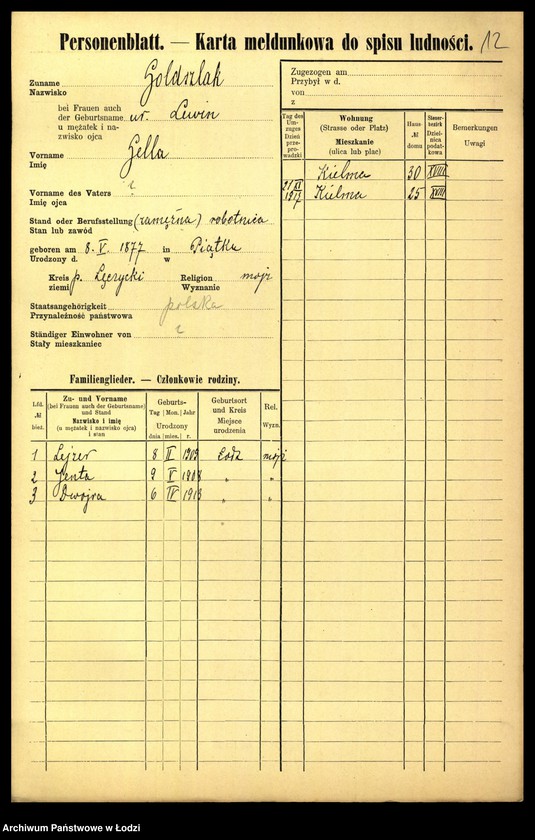 Personenblatt. — Karta meldunkowa do spisu ludności. 12
Zuname
Nazwisko
Goldszlak
bei Frauen auch
der Geburtsname
u mężatek i na-
zwisko ojca
ur. Lewin
Vorname
Imię
Gella
Vorname des Vaters
Imię ojca
Stand oder Berufsstellung
Stan lub zawód
(zamężna) robotnica
geboren am 8. V. 1877 in Piątku
Urodzony d. w
Kreis p. Łęczycki Religion mojż
ziemi Wyznanie
Staatsangehörigkeit
Przynależność państwowa
polska
Ständiger Einwohner von
Stały mieszkaniec
Zugezogen am
Przybył w d.
von
z
Tag des Um-
zuges
Dzień
prze-
prowa-
dzki
Wohnung
(Strasse oder Platz)
Mieszkanie
(ulica lub plac)
Haus
№
domu
Steuer-
bezirk
Dziel-
nica
podat-
kowa
Bemerkungen
Uwagi
Kielma 30 XVIII
21 XI 1917 Kielma 25 XVIII
Familienglieder. — Członkowie rodziny.
Lfd.
№
bież.
Zu- und Vorname
(bei Frauen auch der Geburtsname)
und Stand
Nazwisko i imię
(u mężatek i nazwisko ojca)
i stan
Geburts-
Tag Mon. Jahr
Urodzony
dnia mies. r.
Geburtsort
und Kreis
Miejsce
urodzenia
Rel.
Wyzn.
1 Lejzer 8 II Łódź mojż
2 Jenta 9 V 1908 " "
3 Dwojra 6 IV 1913 " "
Archiwum Państwowe w Łodzi